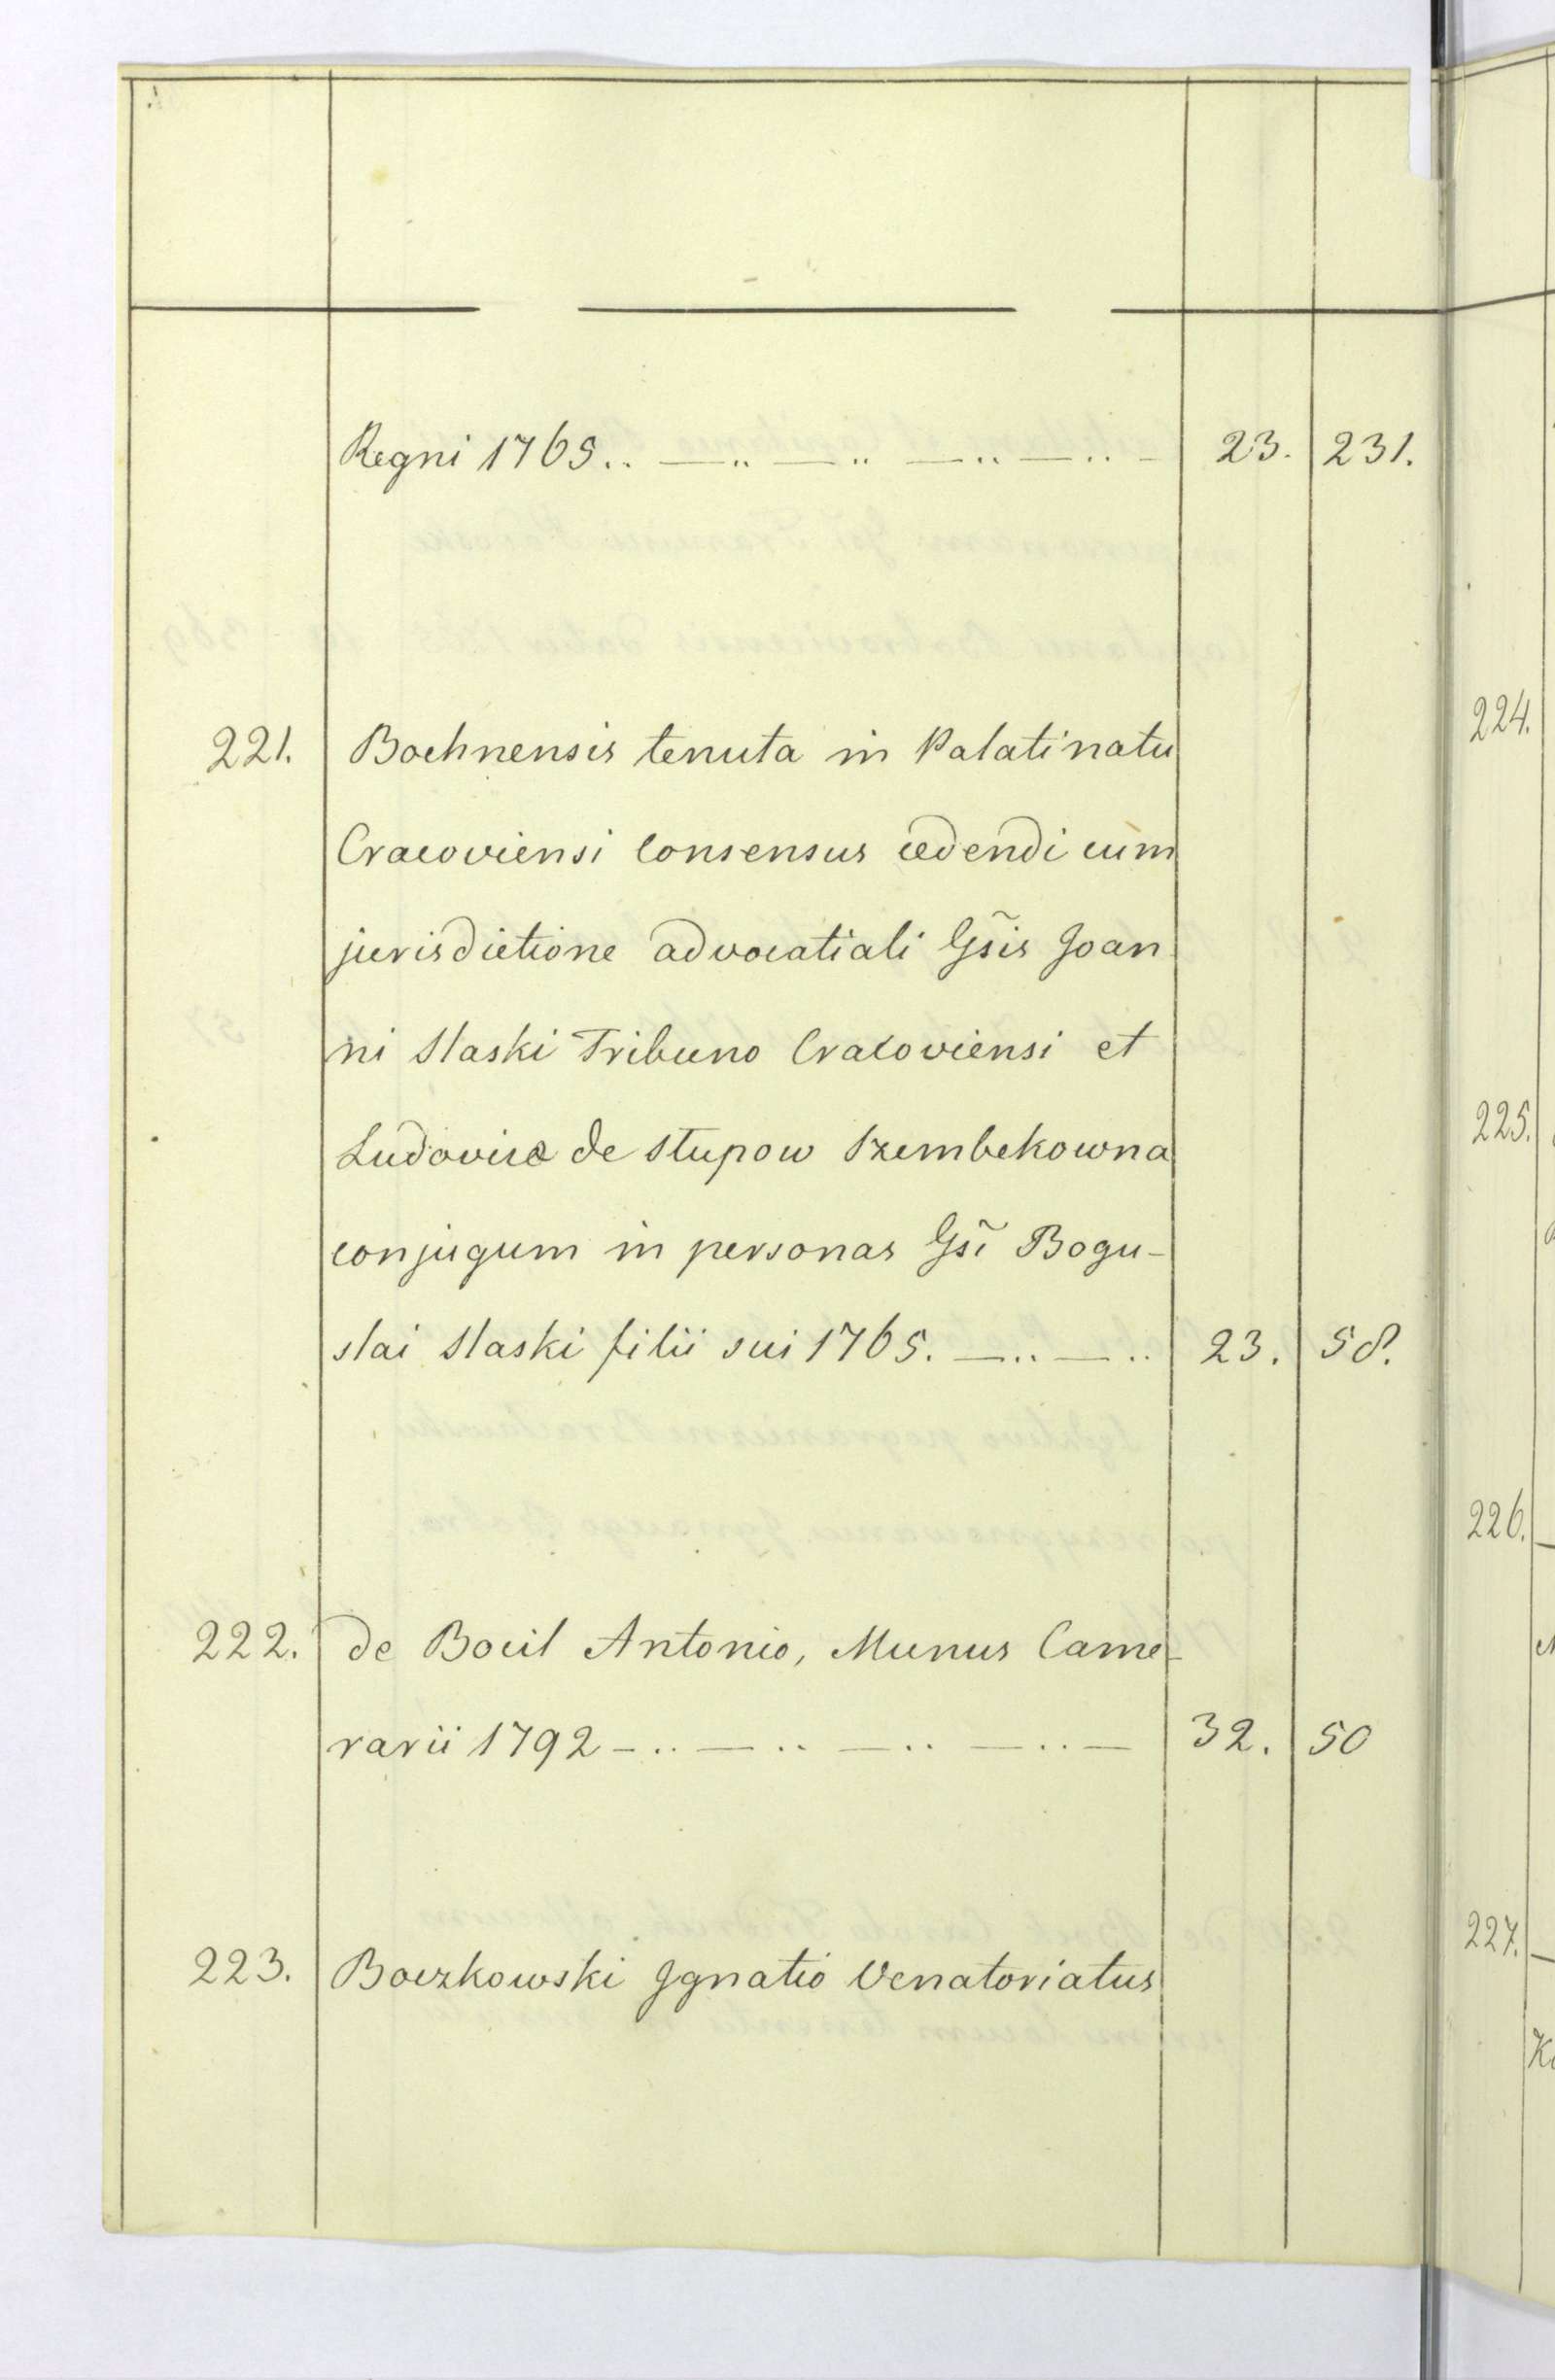 Regni 1765. 23. 231.
221. Bochnensis tenuta in Palatinatu
Cracoviensi consensus cedendi cum
jurisdictione advocatiali Gs̃is Joan
ni Slaski Tribuno Cracoviensi et
Ludovicæ de Slupow Szembekowna
conjugum in personas Gs̃i Bogu-
slai Slaski filii sui 1765. 23. 58.
222. de Bocil Antonio, Munus Came-
rarii 1792 32. 50
223. Boczkowski Ignatio Venatoriatus
224.
225.
226.
227.